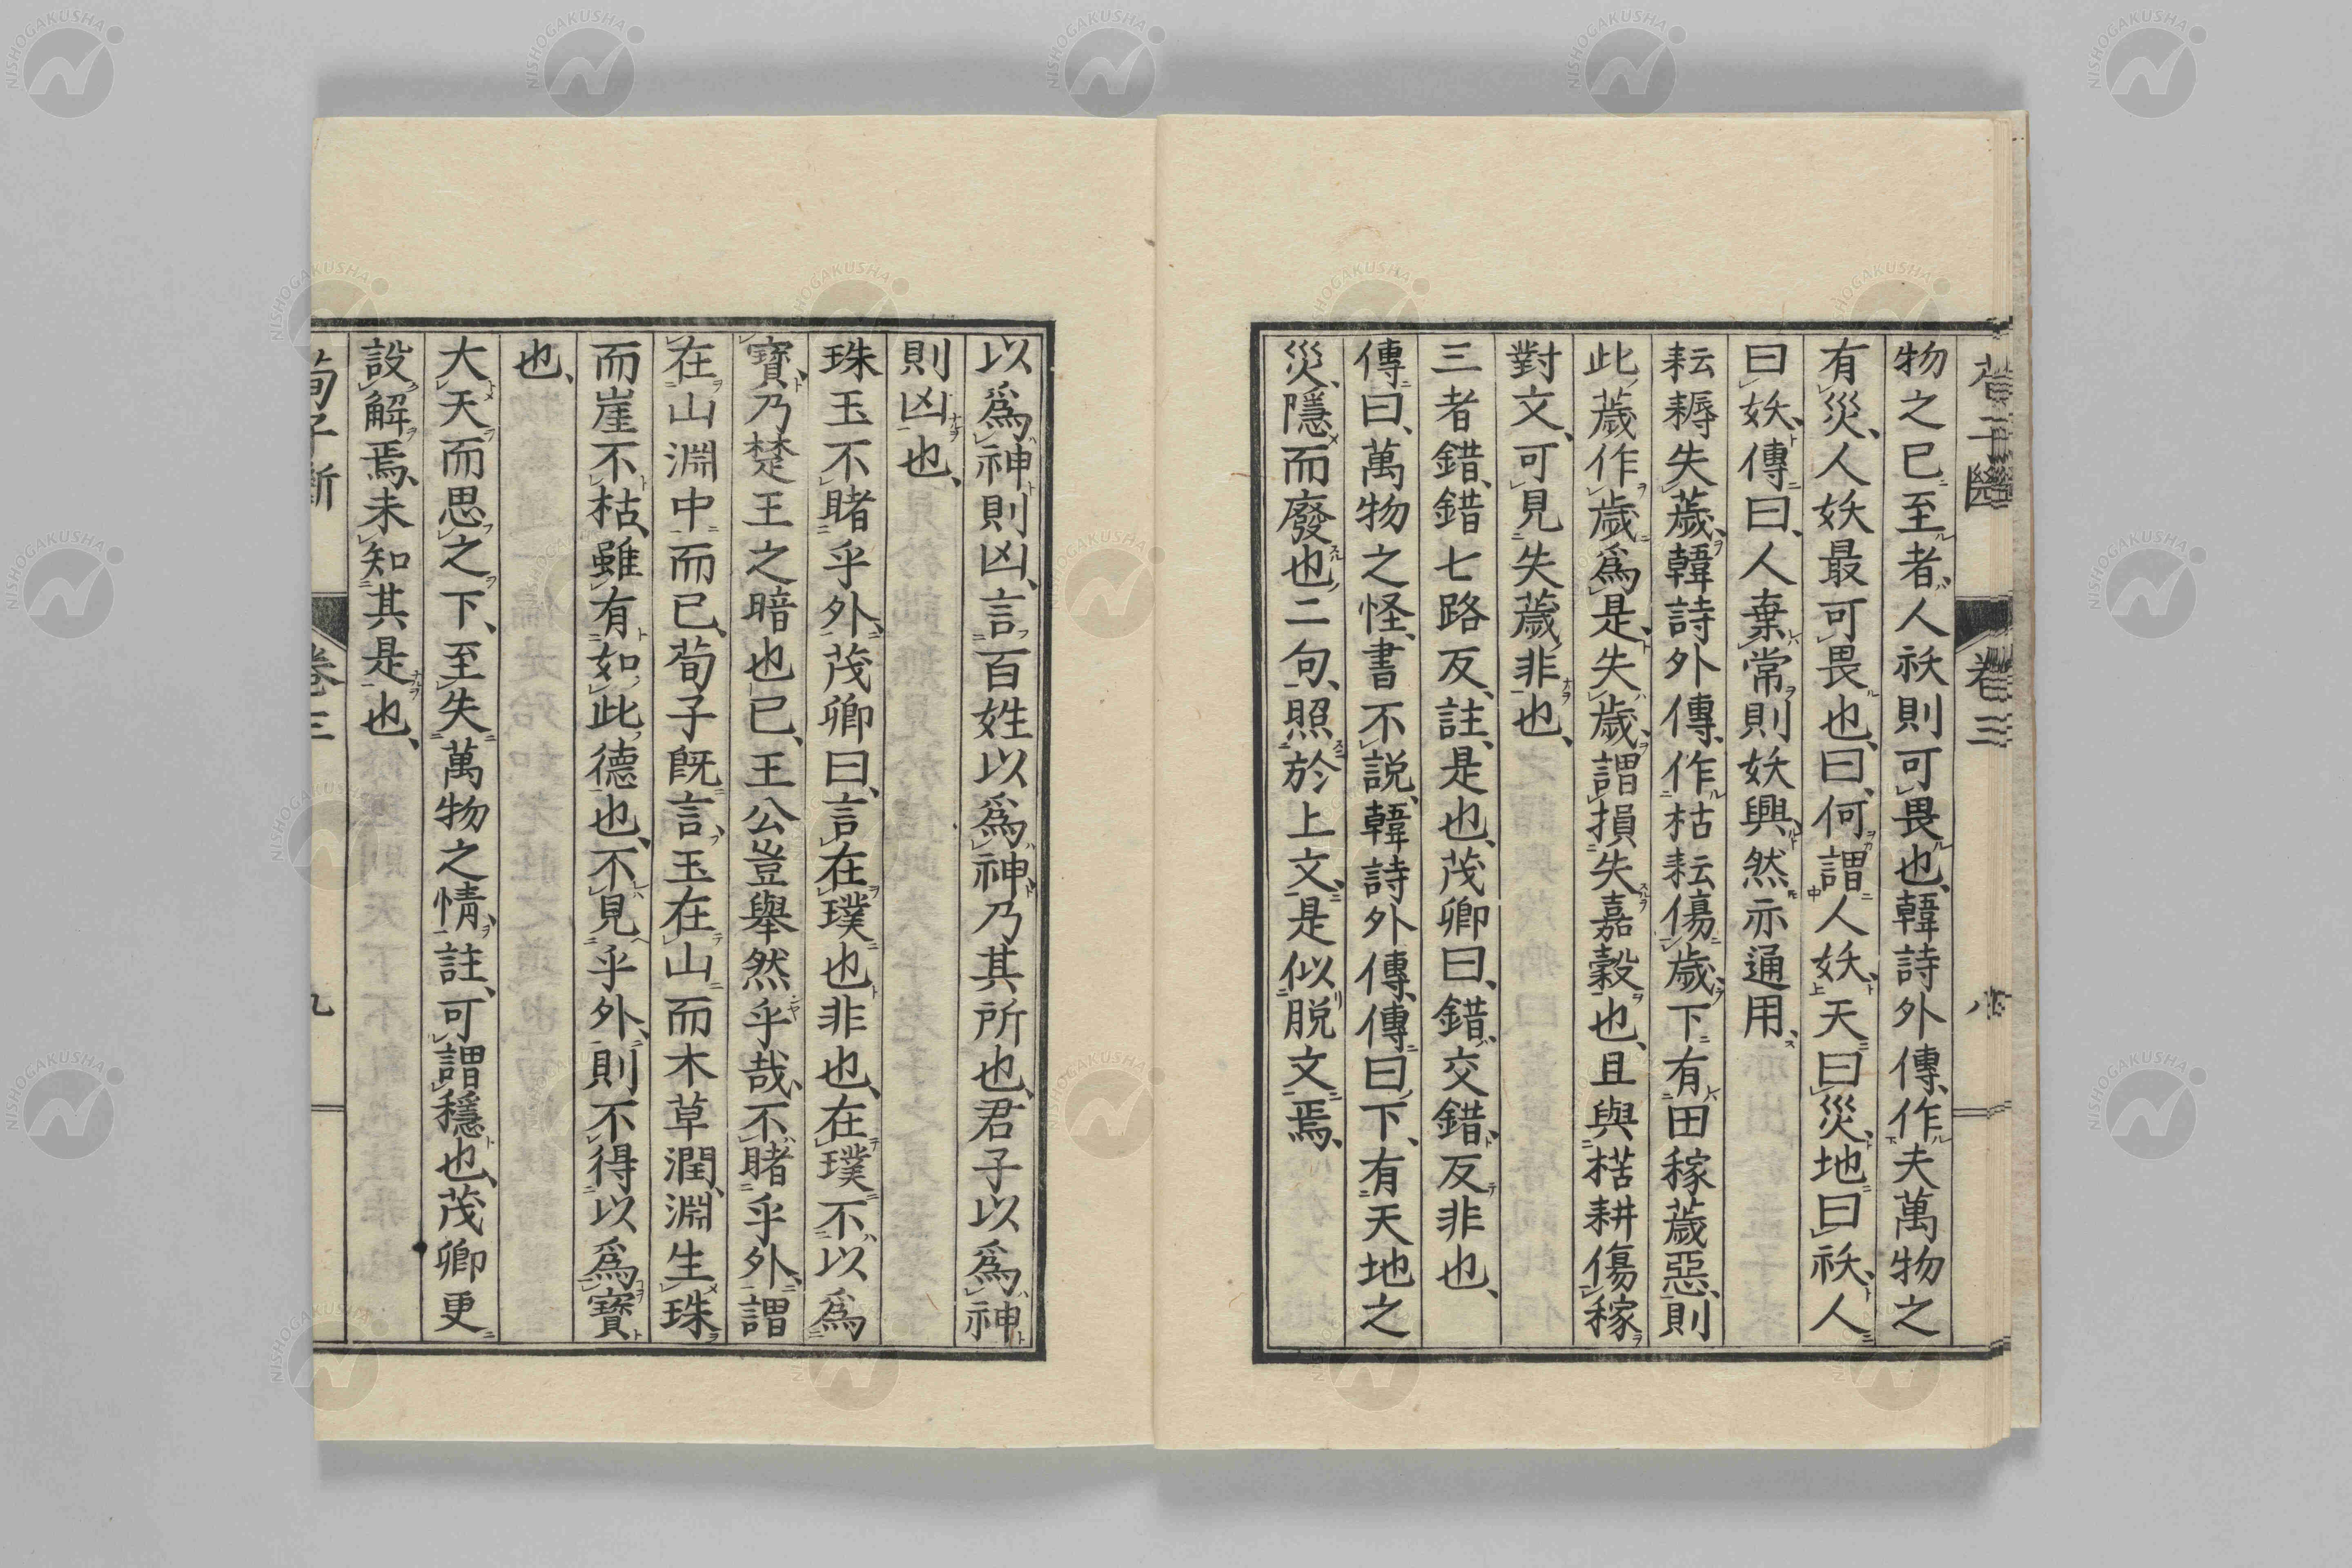 物之已至者、人祅則可畏也、韓詩外傳、作夫萬物之
有災、人妖最可畏也、曰、何謂人妖、天曰災、地曰祅、人
曰妖、傳曰、人棄常則妖興、然亦通用、
耘耨失薉、韓詩外傳、作枯耘傷歳、下有田稼薉惡、則
此薉作歳爲是、失歳、謂損失嘉穀也、且與楛耕傷稼
對文、可見失薉、非也、
三者錯、錯七路反、註、是也、茂卿曰、錯、交錯、反非也、
傳曰、萬物之怪、書不說、韓詩外傳、傳曰、下、有天地之
災、隱而廢也二句、照於上文、是似脱文焉、
卷三
以爲神則凶、言百姓以爲神、乃其所也、君子以爲神
則凶也、
珠玉不睹乎外、茂卿曰、言在璞也、非也、在璞、不以爲
寶、乃楚王之暗也已、王公豈舉然乎哉、不睹乎外、謂
在山淵中而已、荀子既言、玉在山而木草潤、淵生珠
而崖不枯、雖有如此德也、不見乎外、則不得以爲寶
也、
大天而思之下、至失萬物之情、註、可謂穩也、茂卿更
設解焉、未知其是也、
荀子斷 卷三 九
NISHOGAKUSHA